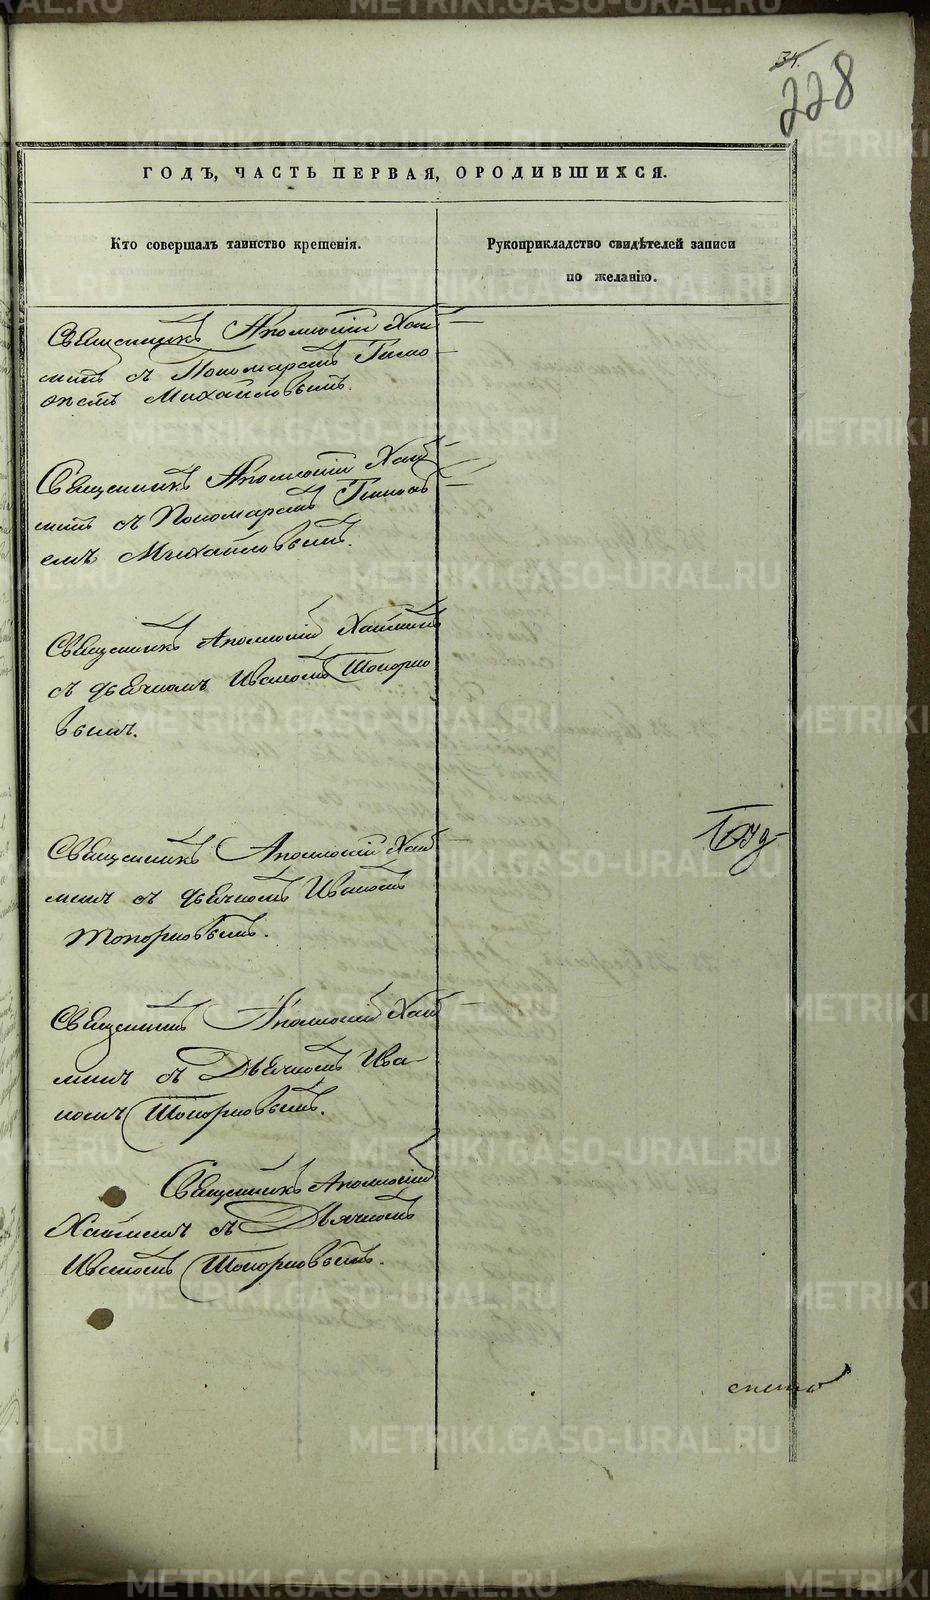 34.
228
ГОДЪ, ЧАСТЬ ПЕРВАЯ, О РОДИВШИХСЯ.
Кто совершалъ таинство крещенія.
Рукоприкладство свидѣтелей записи
по желанію.
Священникъ Аполлоній Хай
минъ съ Пономаремъ Тимо
ѳеемъ Михайловымъ.
Священникъ Аполлоній Хай
минъ съ Пономаремъ Тимоѳ
еемъ Михайловымъ.
Священникъ Аполлоній Хайминъ
съ дьячкомъ Иваномъ Топорко
вымъ.
Священникъ Аполлоній Хай
минъ съ дьячкомъ Иваномъ
Топорковымъ.
Священникъ Аполлоній Хай
минъ съ Дьячкомъ Ива-
номъ Топорковымъ.
Священникъ Аполлоній
Хайминъ съ Дьячкомъ
Иваномъ Топорковымъ.
METRIKI.GASO-URAL.RU